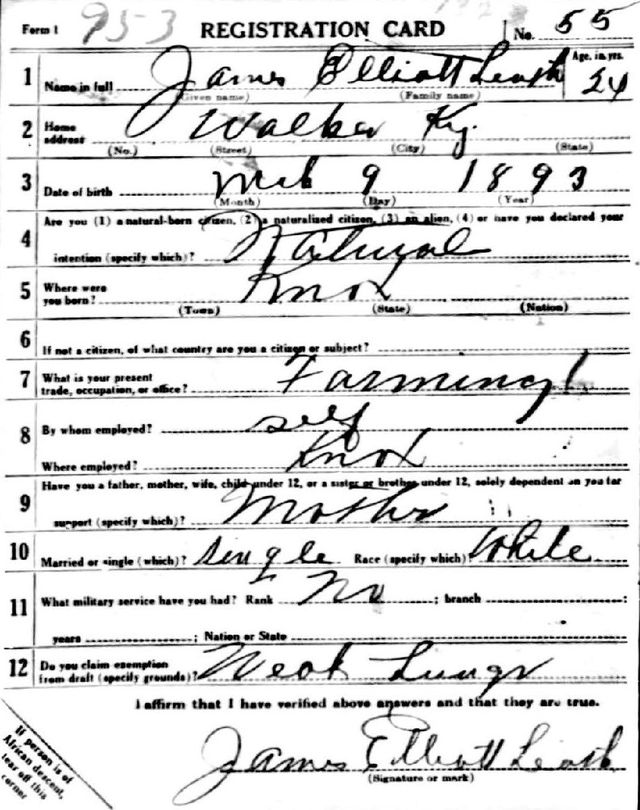 Form 1 953 REGISTRATION CARD No. 55
1 Name in full James Elliott Leash Age, in yrs. 24
(Given name) (Family name)
2 Home address Walker Ky.
(No.) (Street) (City) (State)
3 Date of birth Mch 9 1893
(Month) (Day) (Year)
4 Are you (1) a natural-born citizen, (2) a naturalized citizen, (3) an alien, (4) or have you declared your
intention (specify which)? Natural
5 Where were you born? Knox
(Town) (State) (Nation)
6 If not a citizen, of what country are you a citizen or subject?
7 What is your present trade, occupation, or office? Farming
8 By whom employed? self
Where employed? Knox
9 Have you a father, mother, wife, child under 12, or a sister or brother under 12, solely dependent on you for
support (specify which)? Mother
10 Married or single (which)? Single Race (specify which) White
11 What military service have you had? Rank No ; branch ;
years ; Nation or State
12 Do you claim exemption from draft (specify grounds)? Weak Lungs
I affirm that I have verified above answers and that they are true.
James Elliott Leash
(Signature or mark)
If person is of
African descent,
tear off this
corner